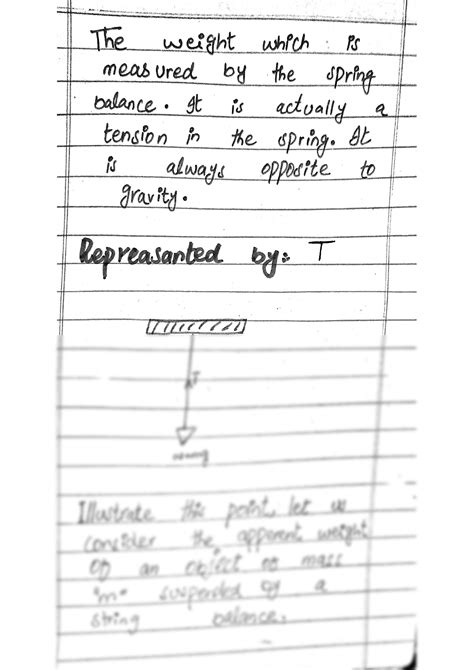 The weight which is
measured by the spring
balance. It is actually a
tension in the spring. It
is always opposite to
gravity.
Repreasanted by: T
T
Illustrate this point, let us
consider the apparent weight
of an object of mass
"m" suspended by a
string balance.